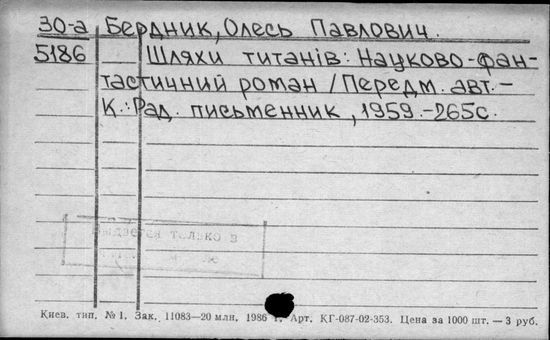 30-а Бердник, Олесь Павлович.
5186 Шляхи титанів: Науково-фан-
тастичний роман / Передм. авт. –
К.: Рад. письменник, 1959. – 265с.
только в
Киев. тип. № 1. Зак. 11083—20 млн. 1986 г. Арт. КГ-087-02-353. Цена за 1000 шт. — 3 руб.